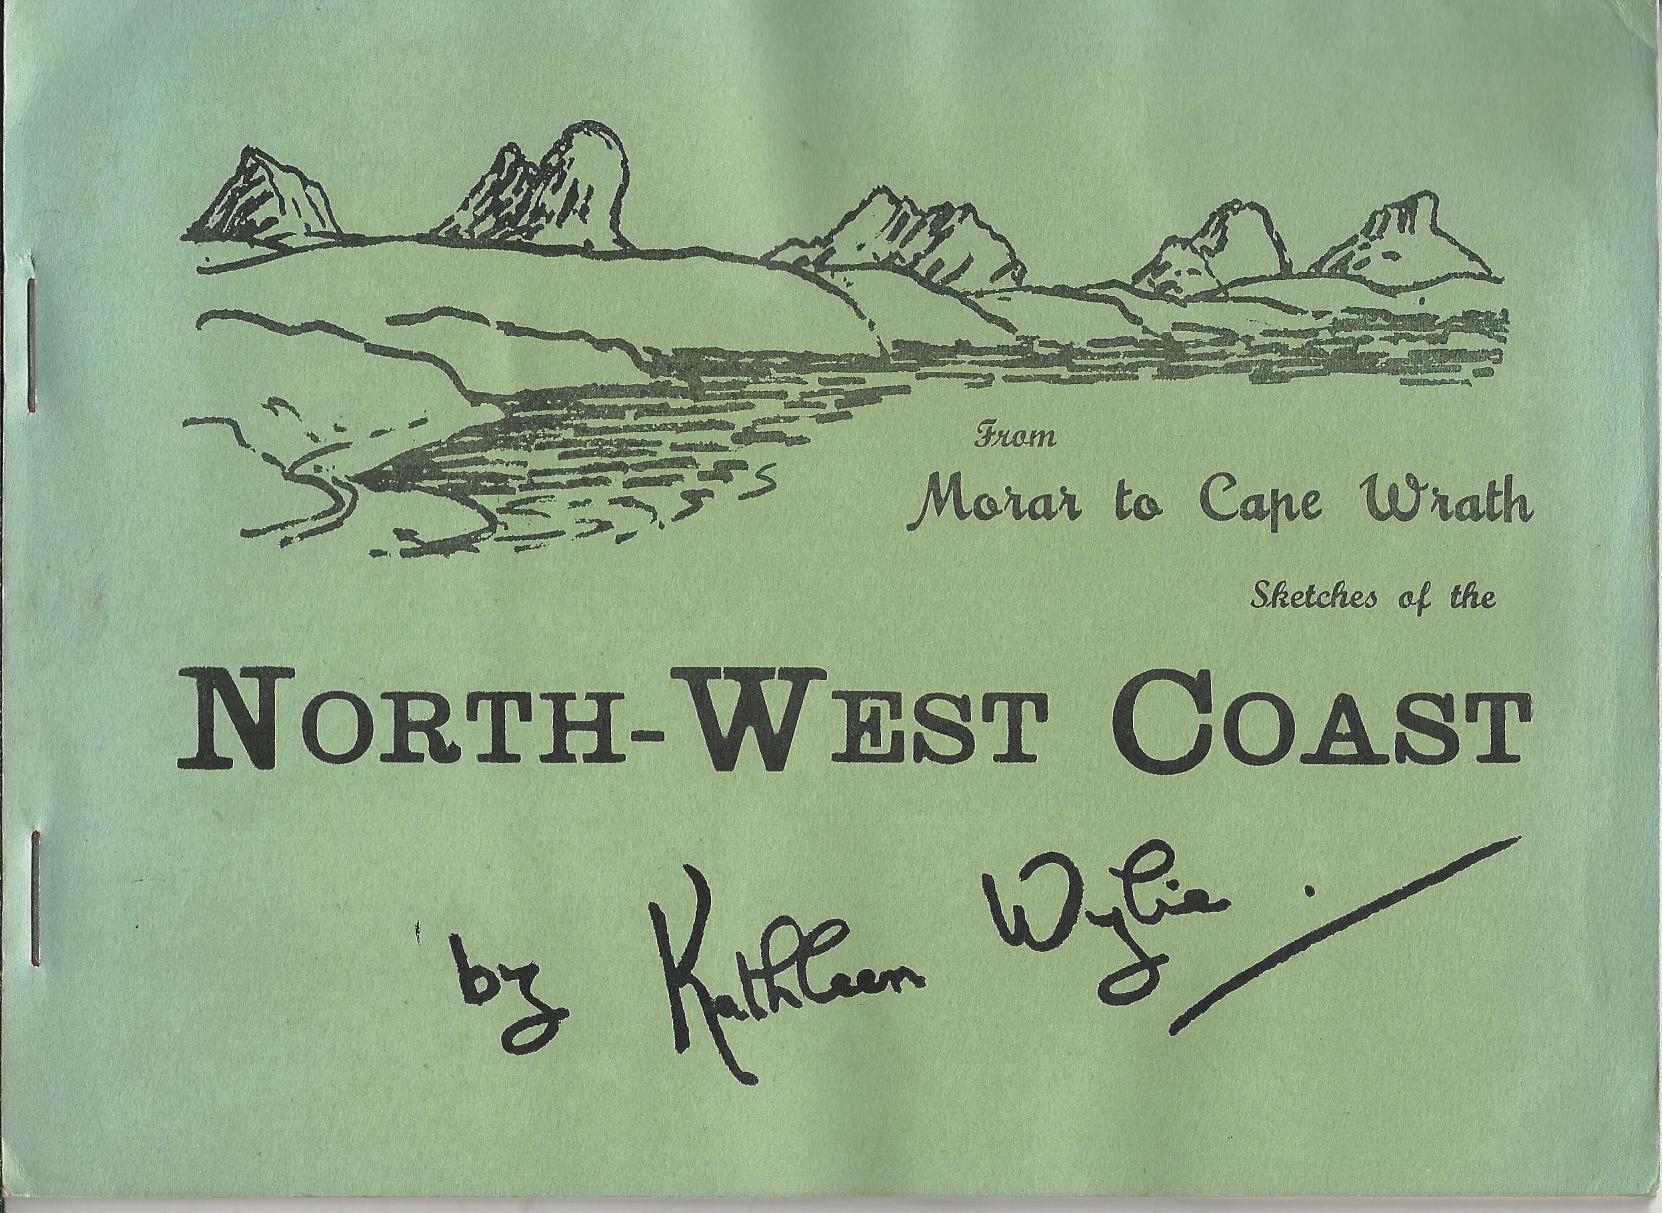 From
Morar to Cape Wrath
Sketches of the
NORTH-WEST COAST
by Kathleen Wylie.